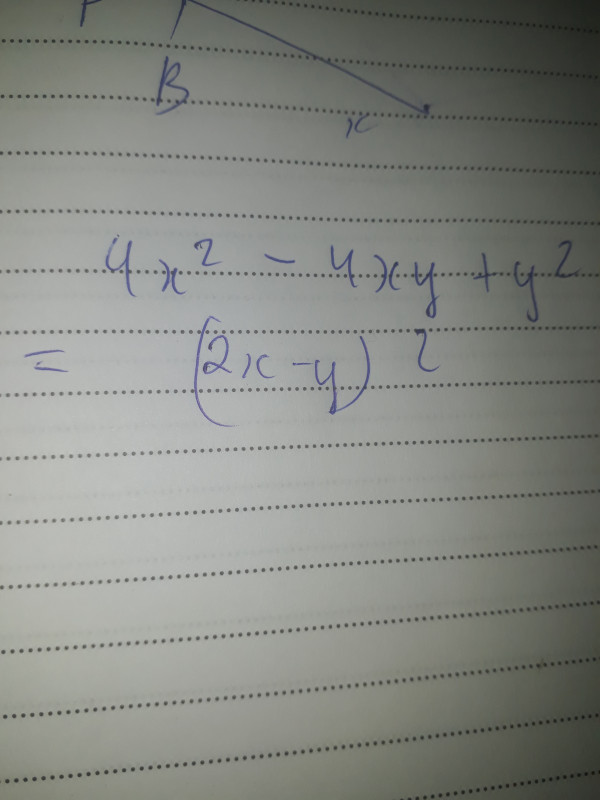 B
x
4x² - 4xy + y²
= (2x-y)²